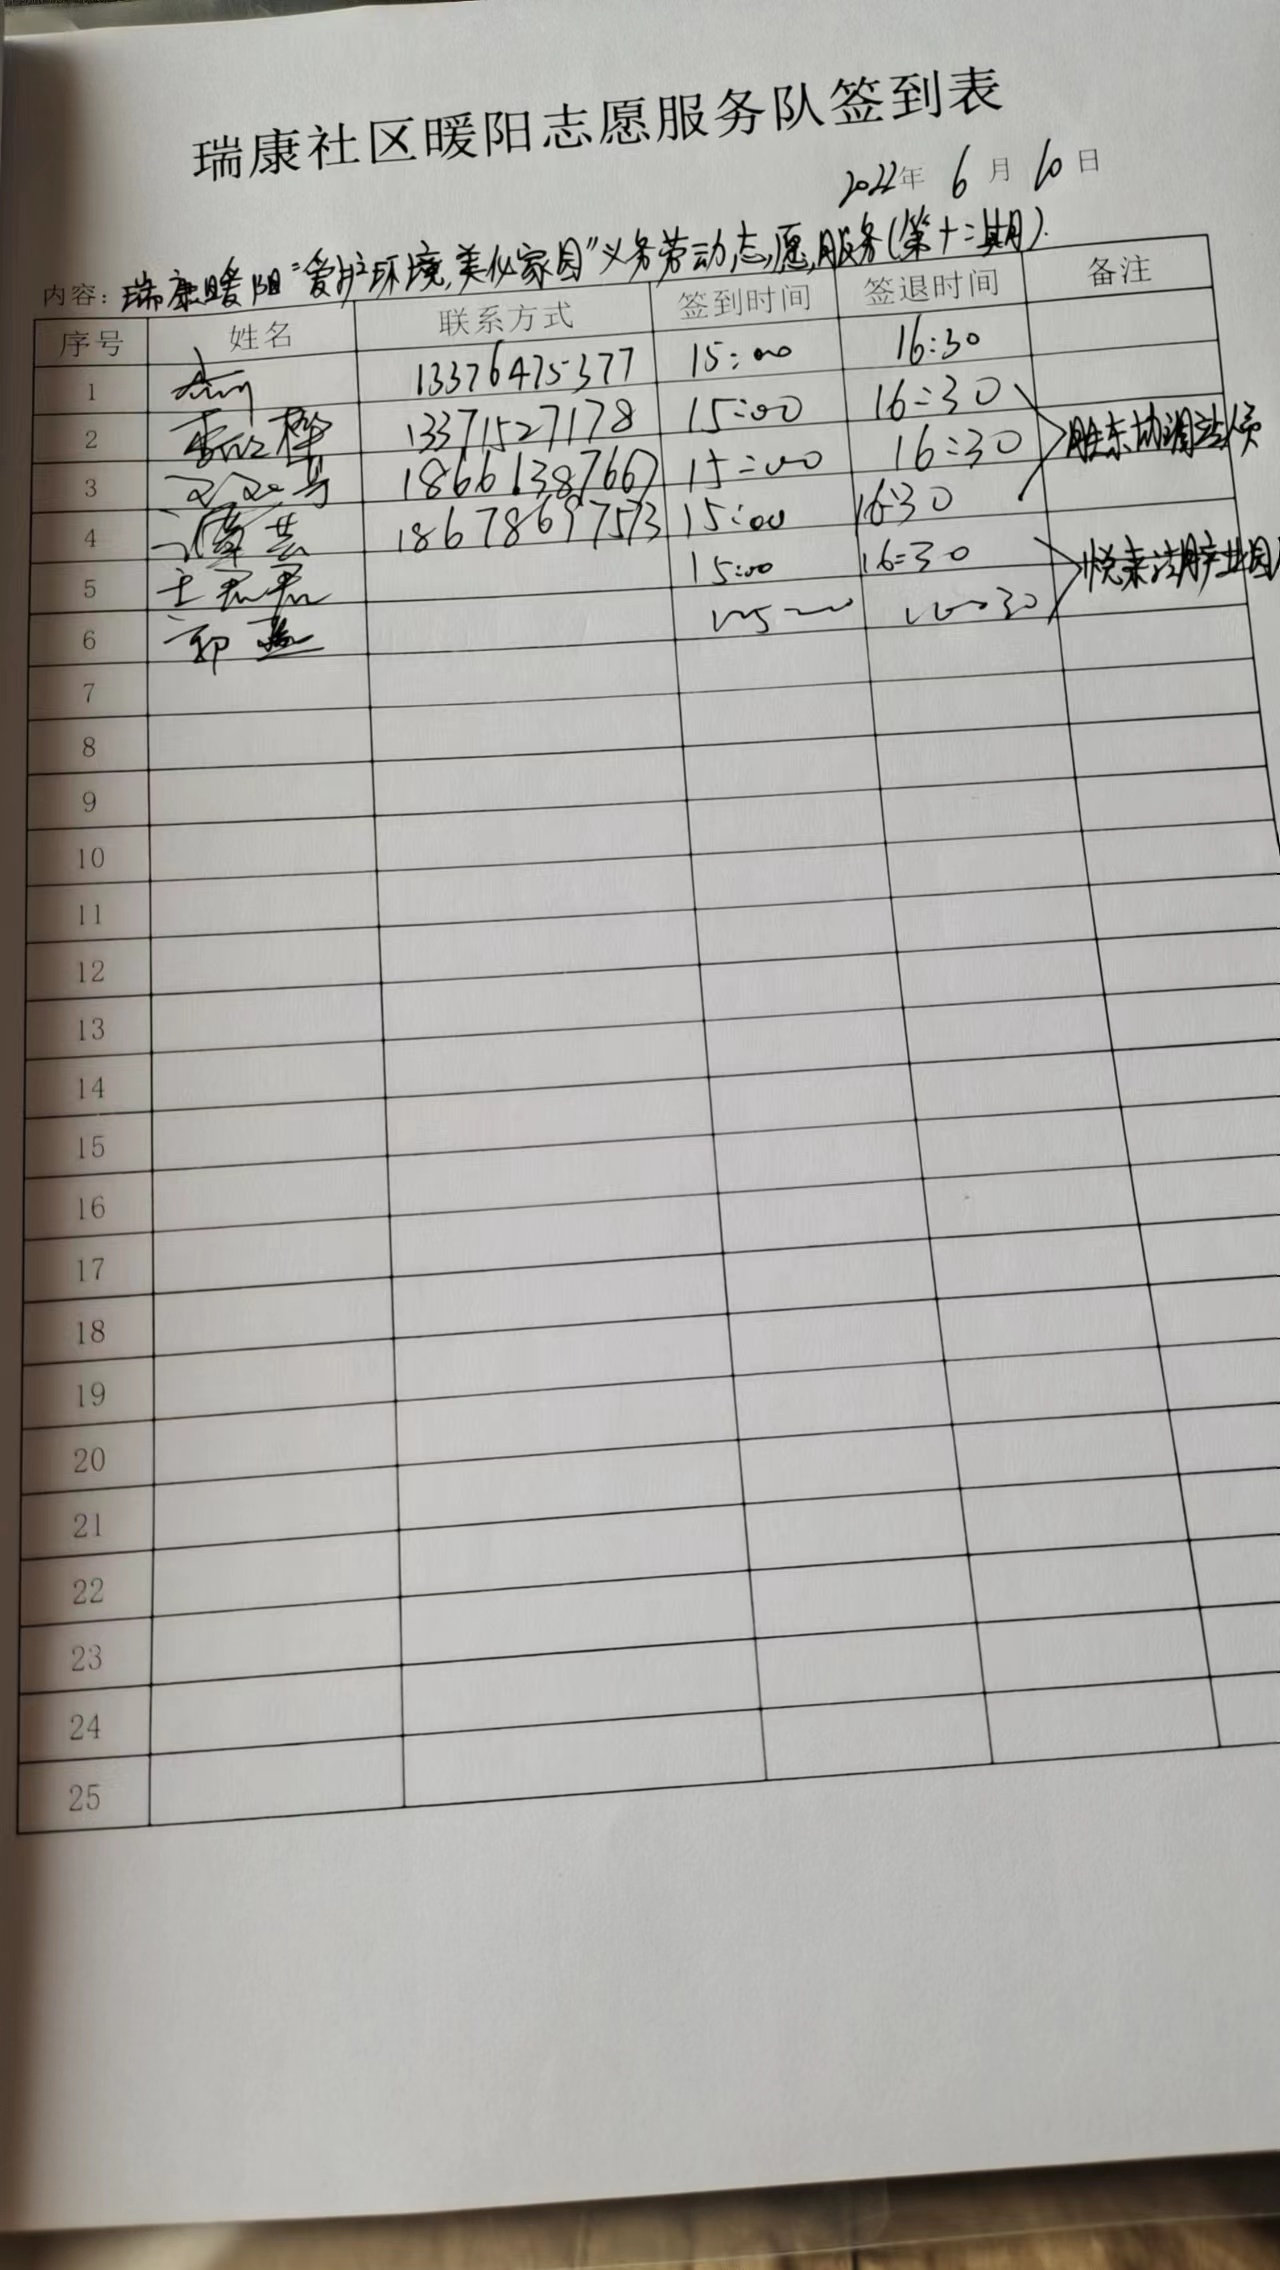 瑞康社区暖阳志愿服务队签到表
2022年 6 月 10 日
内容：瑞康暖阳"爱护环境,美化家园"义务劳动志愿服务(第十二期).
序号 姓名 联系方式 签到时间 签退时间 备注
1 13376475377 15:00 16:30
2 13371527178 15:00 16:30
3 18661387667 15:00 16:30 胜东协调
4 谭芸 18678697573 15:00 16:30
5 王君君 15:00 16:30 悦来湖产业园
6 郭 15:00 16:30
7
8
9
10
11
12
13
14
15
16
17
18
19
20
21
22
23
24
25